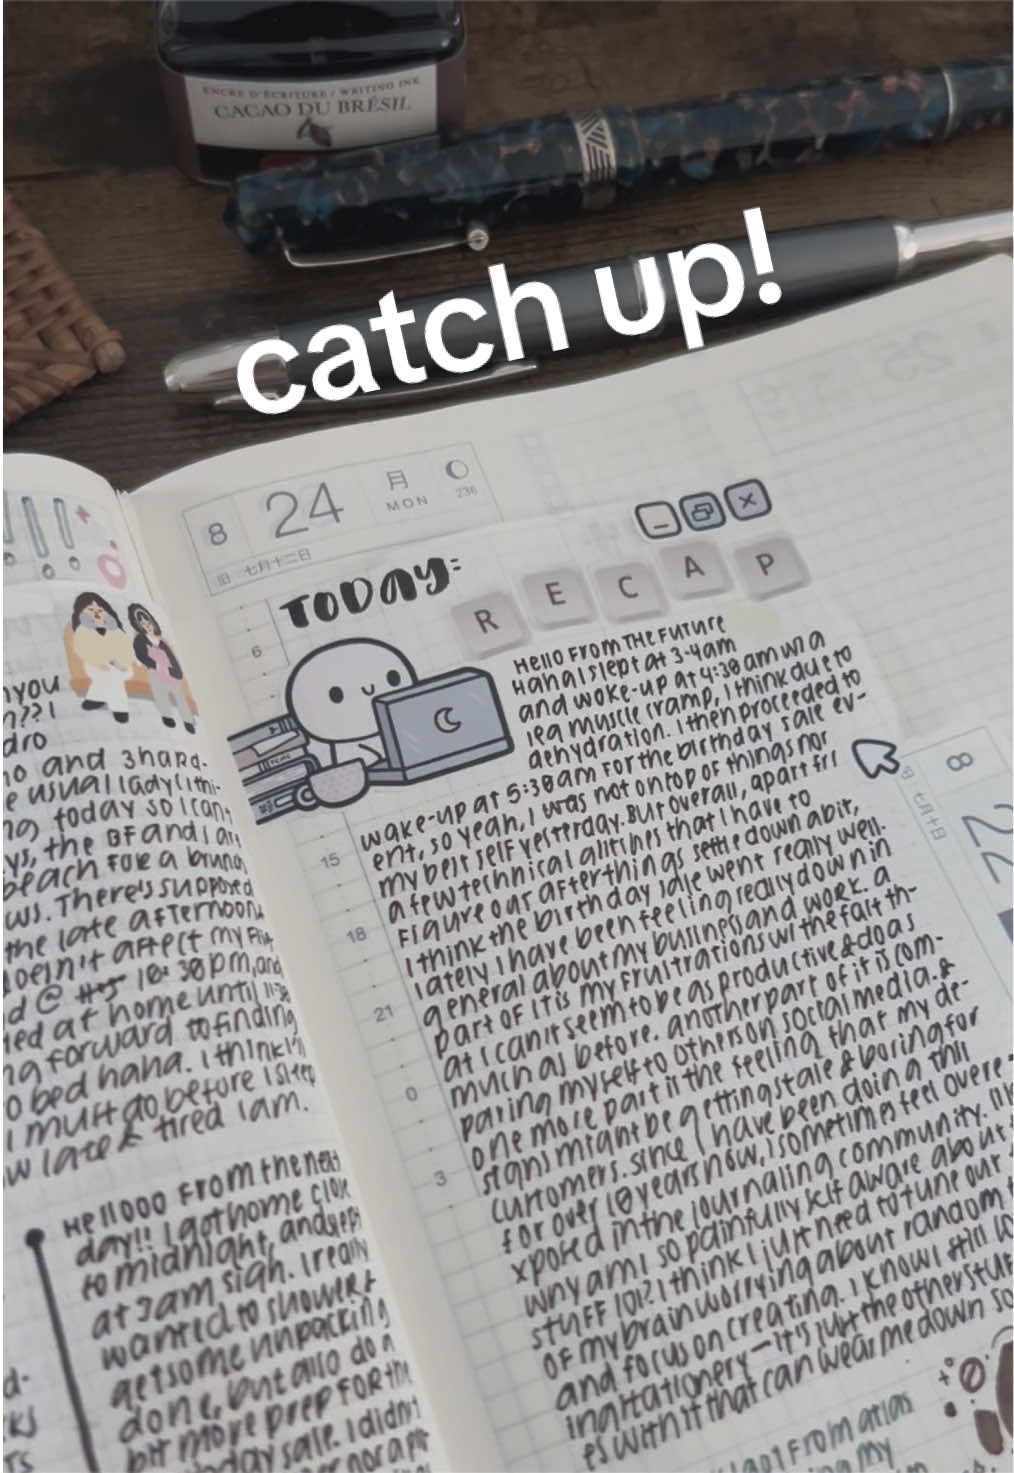 ENCRE D'ÉCRITURE / WRITING INK
CACAO DU BRÉSIL
catch up!
8 24 月 MON 236
旧 七月十二日
TODAY:
RECAP
6
15
18
21
0
3
Hello From THE FUTURE
Hana I slept at 3-4am
and woke-up at 4:30am w/ a
leg muscle cramp, I think due to
dehydration. I then proceeded to
wake-up at 5:30am For the birthday sale ev-
ent, so yeah, I was not on top of things nor
my best self yesterday. But overall, apart fr
a few technical glitches that I have to
Figure out after things settle down a bit,
I think the birthday sale went really well.
lately I have been feeling really down in
general about my business and work. a
part of it is my frustrations w/ the fact th-
at I can't seem to be as productive & do as
much as before. another part of it is com-
paring myself to others on social media. &
one more part is the feeling that my de-
signs might be getting stale & boring for
customers. since I have been doing this
for over 10 years now, I sometimes feel overe
xposed in the journaling community.
why am I so painfully self aware about
stuff lol? I think I just need to tune out
of my brain worrying about random
and focus on creating. I know I still lo
ing stationery — it's just the other stuff
es with it that can wear me down so
from atlas
my
8
七月十日
22
you
dro
no and 3 hard-
e usual lady (I thi-
ng today so I can
ys, the BF and I are
beach For a brund
ws. There's supposed
the late afternoon
doesn't affect my
d @ 10:30pm, and
ed at home until 11:30
ng forward to finding
o bed haha. I think I'm
I must do before I sleep
w late & tired I am.
Hellooo From the next
day!! I got home close
to midnight, and slept
at 3am sigh. I really
wanted to shower &
get some unpacking
done, but also do a
bit more prep FOR th
day sale. I didn't
nor a pr